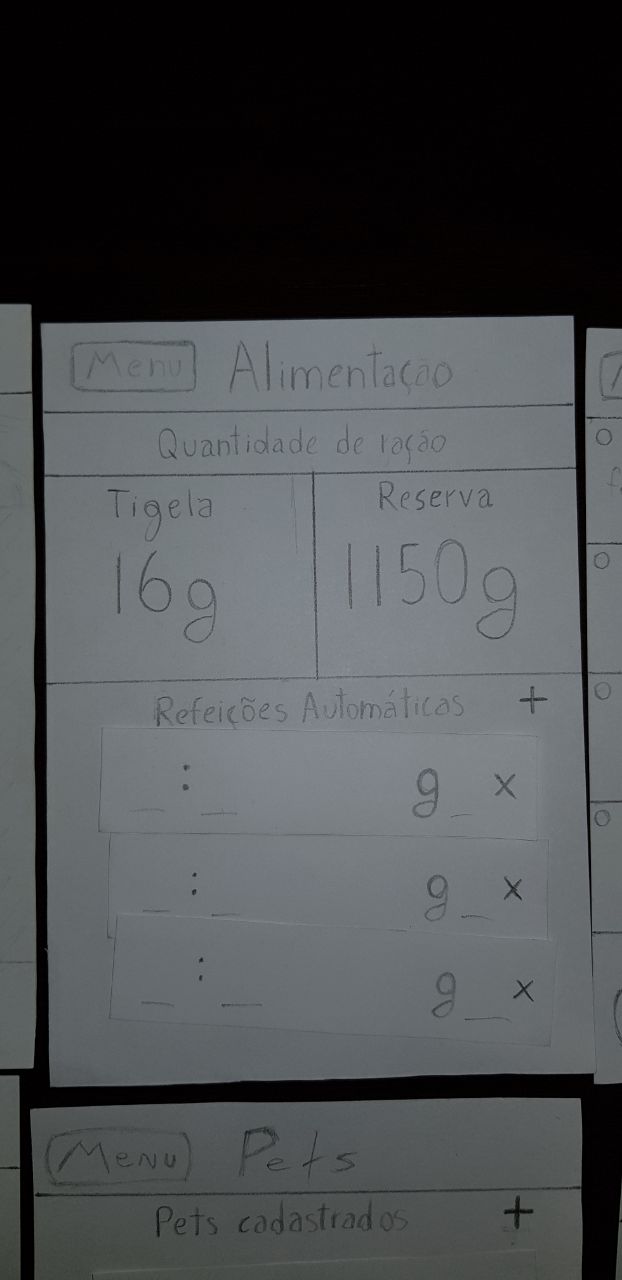 Menu Alimentação
Quantidade de ração
Tigela Reserva
16g 1150g
Refeições Automáticas +
_ : _ g_ x
_ : _ g_ x
_ : _ g_ x
Menu Pets
Pets cadastrados +